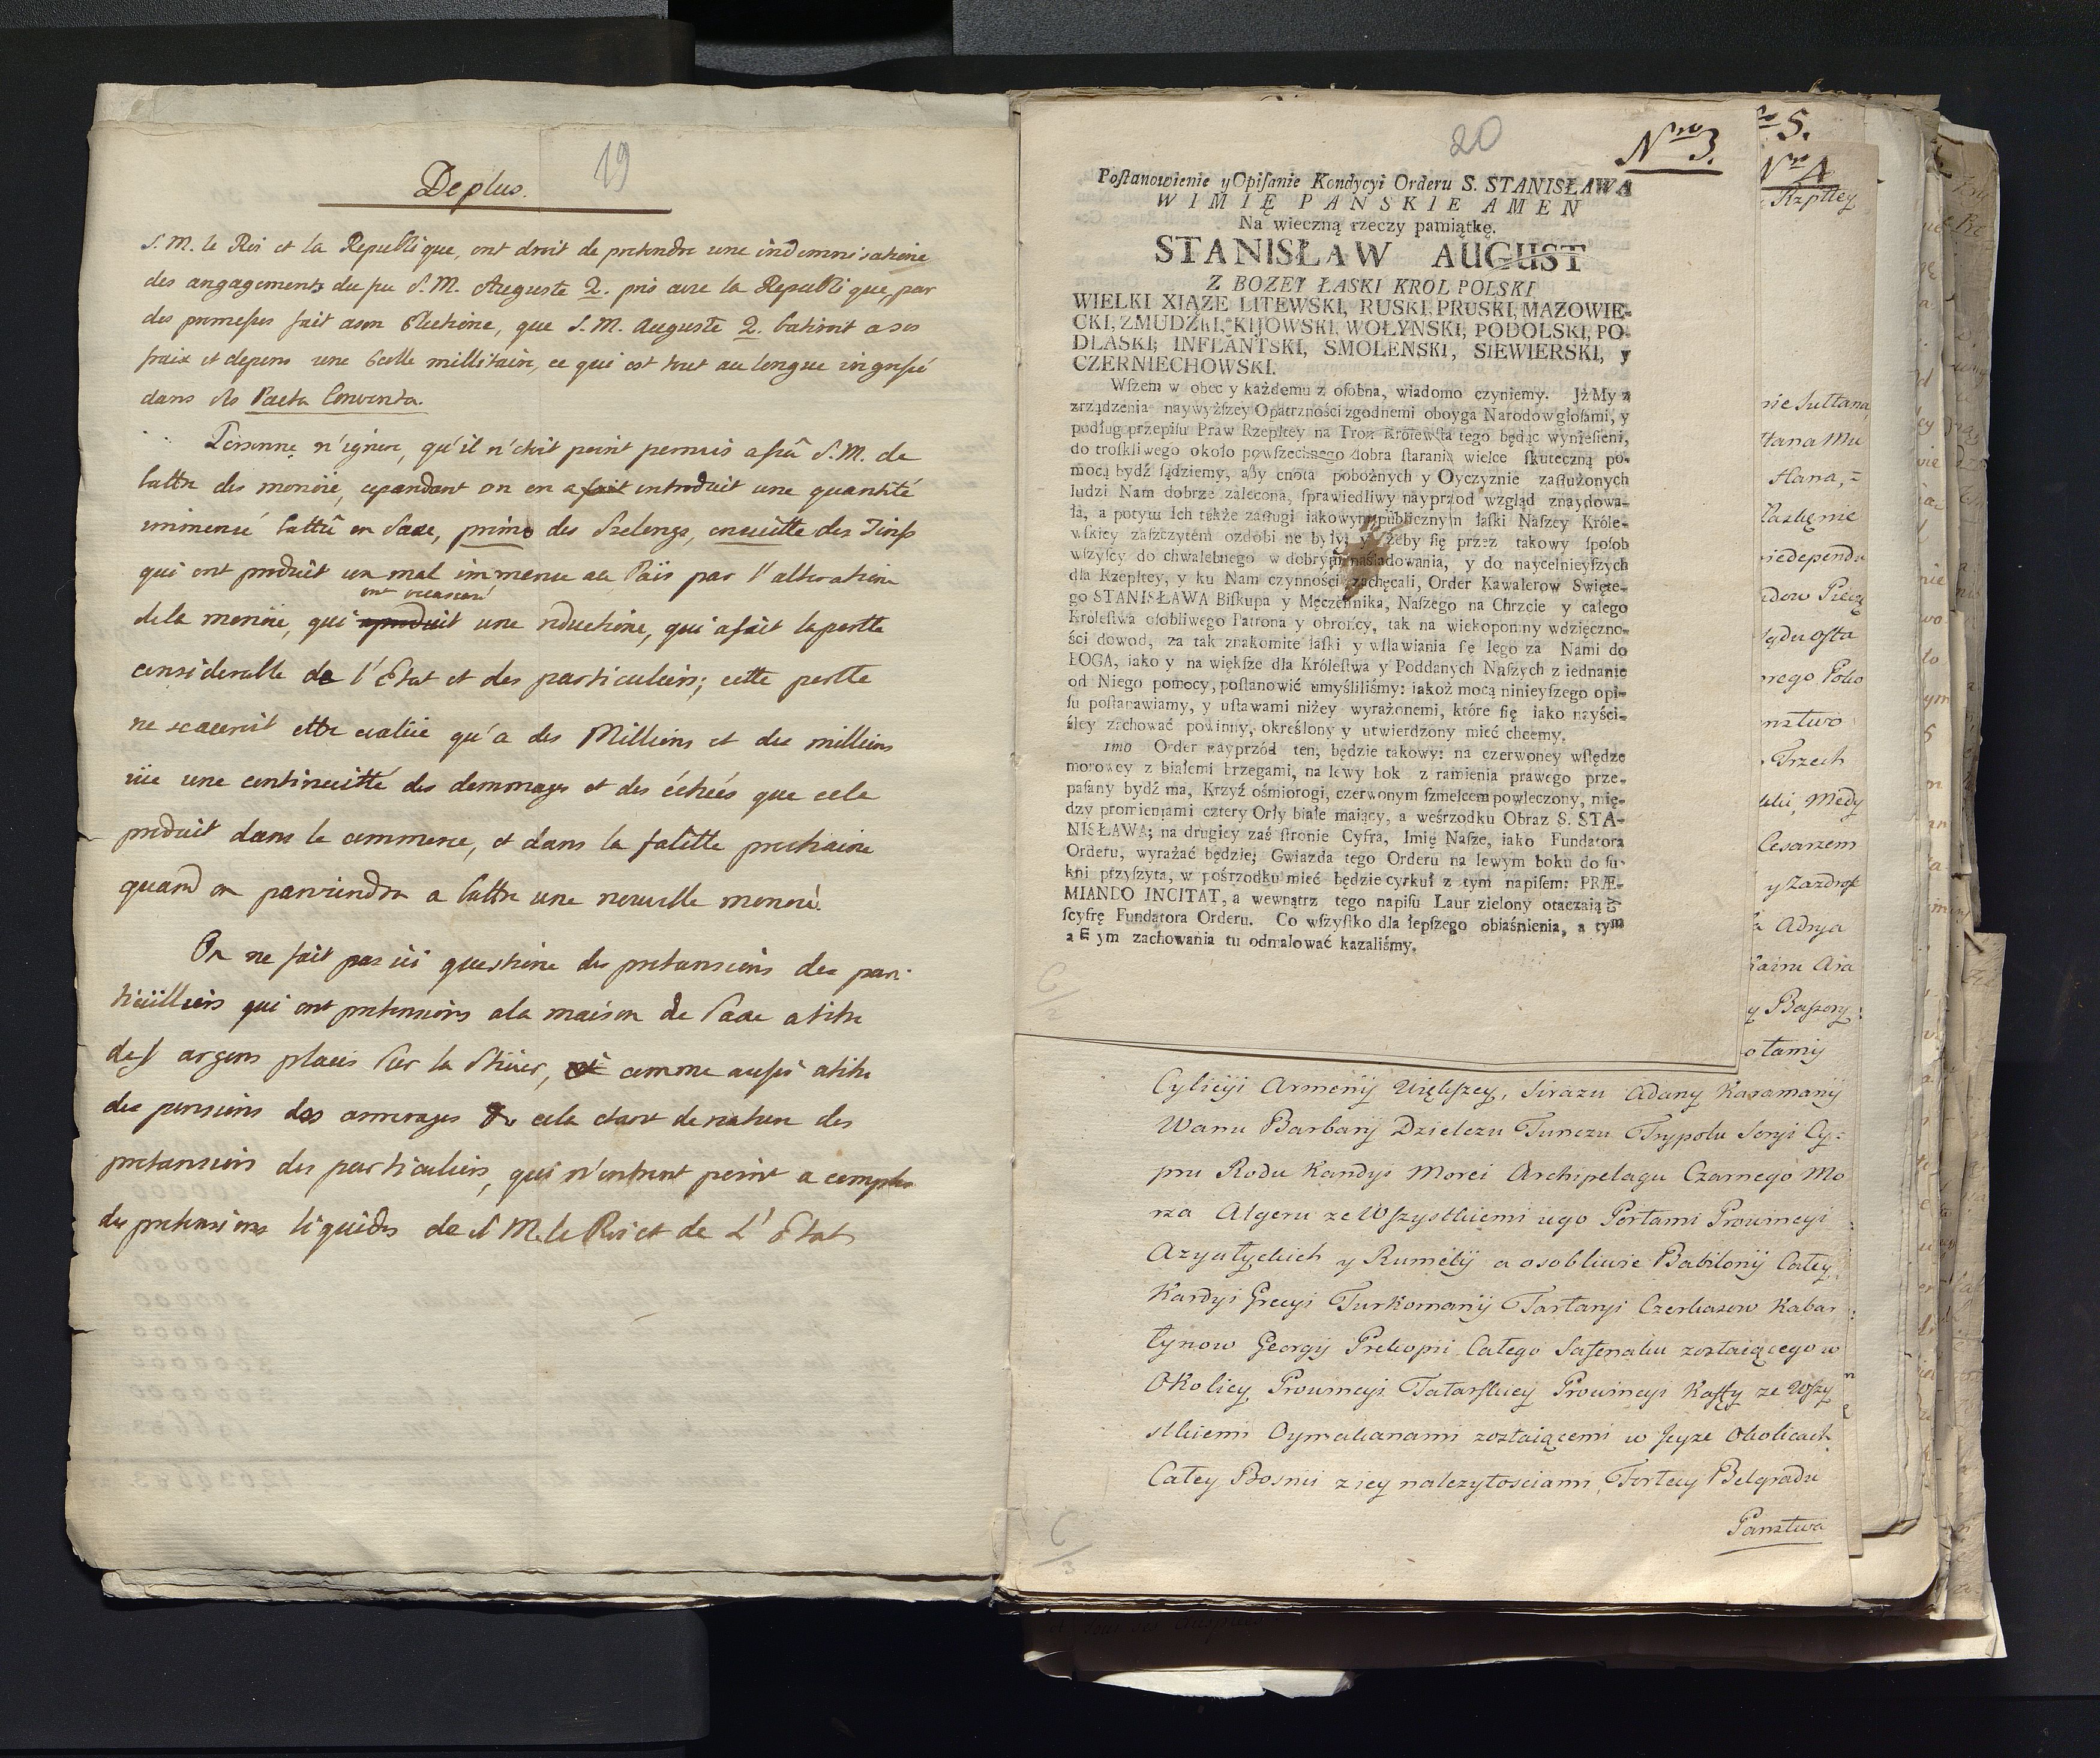 19
De plus.
S. M. le Roi et la Republique, ont droit de pretendre une indemnisatione
des angagements du feu S. M. Auguste 2. pris avec la Republique, par
des promesses fait a son Elictione, que S. M. Auguste 2. batiroit a ses
fraix et depens une Ecolle millitaire, ce qui est tout au longue
dans les Pacta Conventa.
Personne n'ignore, qu'il n'etoit point permis a feû S. M. de
battre des monoïe, cepandant on en a fait introduit une quantité
immensé battû en Saxe, primo des Szelengs, ensuitte des Timfs
qui ont produit un mal immense au Païs par l'alteratione
ont occasioné
de la monoïe, qui a produit une reductione, qui a fait la pertte
considerable de l'Etat et des particuliers; cette pertte
ne scauroit ettre evaluée qu'a des Millions et des millions
vüe une continuitté des dommages et des échées que cela
produit dans le commerce, et dans la prochaine
quand on parviendra a battre une nouvelle monoïe.
On ne fait pas ici questione des pretansions des par-
ticüilliers qui ont pretensions a la maison de Saxe a titre
des argens placés sur la Stüer, comme aussi a titre
des pensions des arrerages cela etant de nature des
pretansions des particuliers, qui n'entrent point a compte
des pretensions liquides de S M. le Roi et de L'Etat
20
Nro 3.
Poſtanowienie y Opiſanie Kondycyi Orderu S. STANISŁAWA
W IMIĘ PANSKIE AMEN
Na wieczną rzeczy pamiątkę.
STANISŁAW AUGUST
Z BOZEY ŁASKI KROL POLSKI
WIELKI XIĄZE LITEWSKI, RUSKI, PRUSKI, MAZOWIE-
CKI, ZMUDŹKI, KIJOWSKI, WOŁYNSKI, PODOLSKI, PO-
DLASKI; INFLANTSKI, SMOLENSKI, SIEWIERSKI, y
CZERNIECHOWSKI.
Wſzem w obec y każdemu z oſobna, wiadomo czyniemy. Jż My z
zrządzenia naywyżſzey Opatrzności zgodnemi oboyga Narodow głoſami, y
podług przepiſu Praw Rzepltey na Tron Królewſta tego będąc wynieſieni,
do troſkliwego około powſzechnego dobra ſtarania wielce ſkuteczną po-
mocą bydź ſądziemy, aby cnota pobożnych y Oyczyznie zaſłużonych
ludzi Nam dobrze zalecona, ſprawiedliwy nayprzod wzgląd znaydowa-
ła, a potym Ich także zaſługi iakowym publicznym łaſki Naſzey Króle-
wſkiey zaſzczytem ozdobi ne były; y żeby ſię przez takowy ſpoſob
wſzyſcy do chwalebnego w dobrym naśladowania, y do naycelnieyſzych
dla Rzepltey, y ku Nam czynności zachęcali, Order Kawalerow Swięte-
go STANISŁAWA Biſkupa y Męczennika, Naſzego na Chrzcie y całego
Króleſtwa oſobliwego Patrona y obrońcy, tak na wiekopomny wdzięczno-
ści dowod, za tak znakomite łaſki y wſławiania ſię Iego za Nami do
BOGA, iako y na więkſze dla Króleſtwa y Poddanych Naſzych z iednanie
od Niego pomocy, poſtanowić umyśliliśmy: iakoż mocą ninieyſzego opi-
ſu poſtanawiamy, y uſtawami niżey wyrażonemi, które ſię iako nayści-
śley zachować powinny, określony y utwierdzony mieć chcemy.
1mo Order nayprzód ten, będzie takowy: na czerwoney wſtędze
morowey z białemi brzegami, na lewy bok z ramienia prawego prze-
paſany bydź ma, Krzyź ośmiorogi, czerwonym ſzmelcem powleczony, mię-
dzy promieniami cztery Orły białe maiący, a weśrzodku Obraz S. STA-
NISŁAWA; na drugiey zaś ſtronie Cyfra, Imię Naſze, iako Fundatora
Orderu, wyrażać będzie; Gwiazda tego Orderu na lewym boku do ſu-
kni przyſzyta, w pośrzodku mieć będzie cyrkuł z tym napiſem: PRÆ-
MIANDO INCITAT, a wewnątrz tego napiſu Laur zielony otaczaią cy
ſcyfrę Fundatora Orderu. Co wſzyſtko dla lepſzego obiaśnienia, a tym
ym zachowania tu odmalować kazaliśmy.
C/2
5.
Nro 4
Rzpltey
nie Sułtana
łtana Mu
łtana,
Trzech
Medy
Cesarzem
y Zazdroſ
Adrya
y Baſzory
Cylicyi Armenij Więkſzey, Sirazu Adany Karamanij
Wanu Barbarij Dzielezu Tunezu Trypolu Soryi Cy-
pru Rodu Kandyi Morei Archipelagu Czarnego Mo
rza Algeru ze Wſzystkiemi iego Portami Prowincyi
Azyatyckich y Rumelij a osobliwie Babilonij Całey
Kardyi Grecyi Turkomanij Tartaryi Czerkasow Kabar
tynow Georgij Prekopii Całego zostaiącego w
Okolicy Prowincyi Tatarſkiey Prowincyi Kaffy ze Wſzy
stkiemi Oymakanami zostaiącemi w teyze Okolicach
Całey Bosnii z iey nalezytosciami, Fortecy Belgradu
Panztwa
C/3